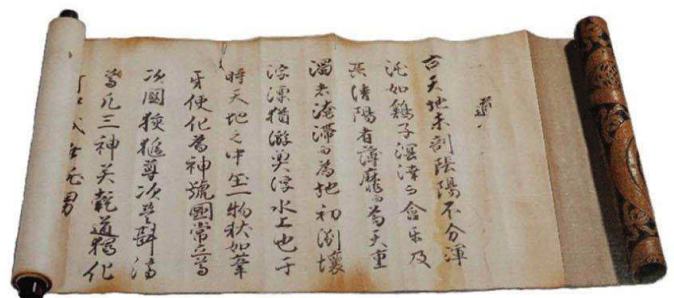 古天地未剖陰陽不分渾
沌如鶏子溟涬而含牙及
其清陽者薄靡而為天重
濁者淹滞而為地初洲壤
浮漂猶游魚浮水上也于
時天地之中生一物状如葦
牙便化為神號國常立尊
次國狭槌尊次豊斟渟
尊凡三神矣乾道獨化
成此純男